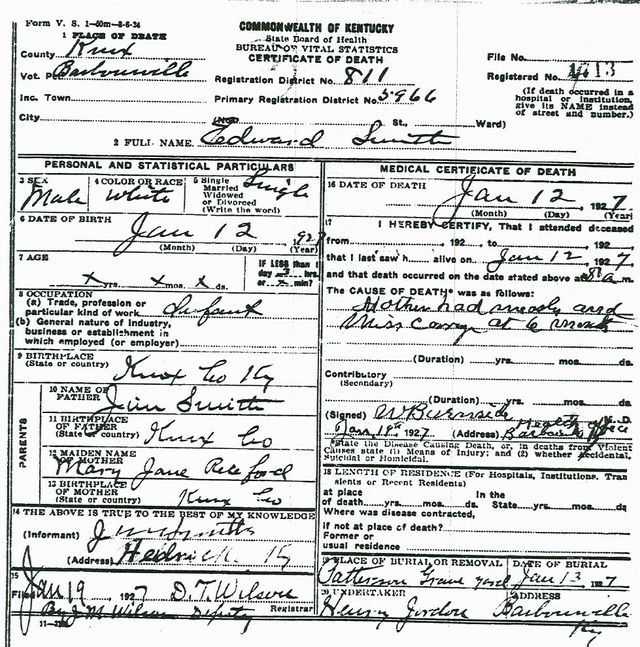 Form V. S. 1-50m-8-6-24
COMMONWEALTH OF KENTUCKY
State Board of Health
BUREAU OF VITAL STATISTICS
CERTIFICATE OF DEATH
1 PLACE OF DEATH
County Knox
Vot. P. Barbourville
Inc. Town
City
Registration District No. 811
Primary Registration District No. 5966
File No.
Registered No. 1613
(If death occurred in a hospital or institution, give its NAME instead of street and number.)
(No. St., Ward)
2 FULL NAME. Edward Smith
PERSONAL AND STATISTICAL PARTICULARS
3 SEX Male
4 COLOR OR RACE White
5 Single Married Widowed or Divorced (Write the word) Single
6 DATE OF BIRTH Jan 12 1927
(Month) (Day) (Year)
7 AGE x yrs. x mos. x ds.
IF LESS than 1 day 3 hrs. or x min?
8 OCCUPATION
(a) Trade, profession or particular kind of work Infant
(b) General nature of industry, business or establishment in which employed (or employer)
9 BIRTHPLACE
(State or country) Knox Co Ky
PARENTS
10 NAME OF FATHER Jim Smith
11 BIRTHPLACE OF FATHER (State or country) Knox Co
12 MAIDEN NAME OF MOTHER Mary Jane
13 BIRTHPLACE OF MOTHER (State or country) Knox Co
14 THE ABOVE IS TRUE TO THE BEST OF MY KNOWLEDGE
(Informant) Jim Smith
(Address) Hedrick Ky
15
Filed Jan 19 1927 D.T. Wilson
By J.M. Wilson Deputy Registrar
MEDICAL CERTIFICATE OF DEATH
16 DATE OF DEATH Jan 12 1927
(Month) (Day) (Year)
17 I HEREBY CERTIFY, That I attended deceased
from 192 to 192
that I last saw h alive on Jan 12 1927
and that death occurred on the date stated above at 8 a m.
The CAUSE OF DEATH* was as follows:
Mother had measly and
Miss Carrge at 6 month
(Duration) yrs. mos. ds.
Contributory
(Secondary)
(Duration) yrs. mos. ds.
(Signed) W Burnside M. D.
Health office
Jan 18th 1927 (Address) Barbourville Ky
*State the Disease Causing Death, or, in deaths from Violent Causes state (1) Means of Injury; and (2) whether Accidental, Suicidal or Homicidal.
18 LENGTH OF RESIDENCE (For Hospitals, Institutions, Tran
sients or Recent Residents)
at place of death yrs. mos. ds. In the State yrs. mos. ds.
Where was disease contracted,
if not at place of death?
Former or
usual residence
19 PLACE OF BURIAL OR REMOVAL Patterson Grave yard
DATE OF BURIAL Jan 13 1927
20 UNDERTAKER Henry Jordon
ADDRESS Barbourville Ky